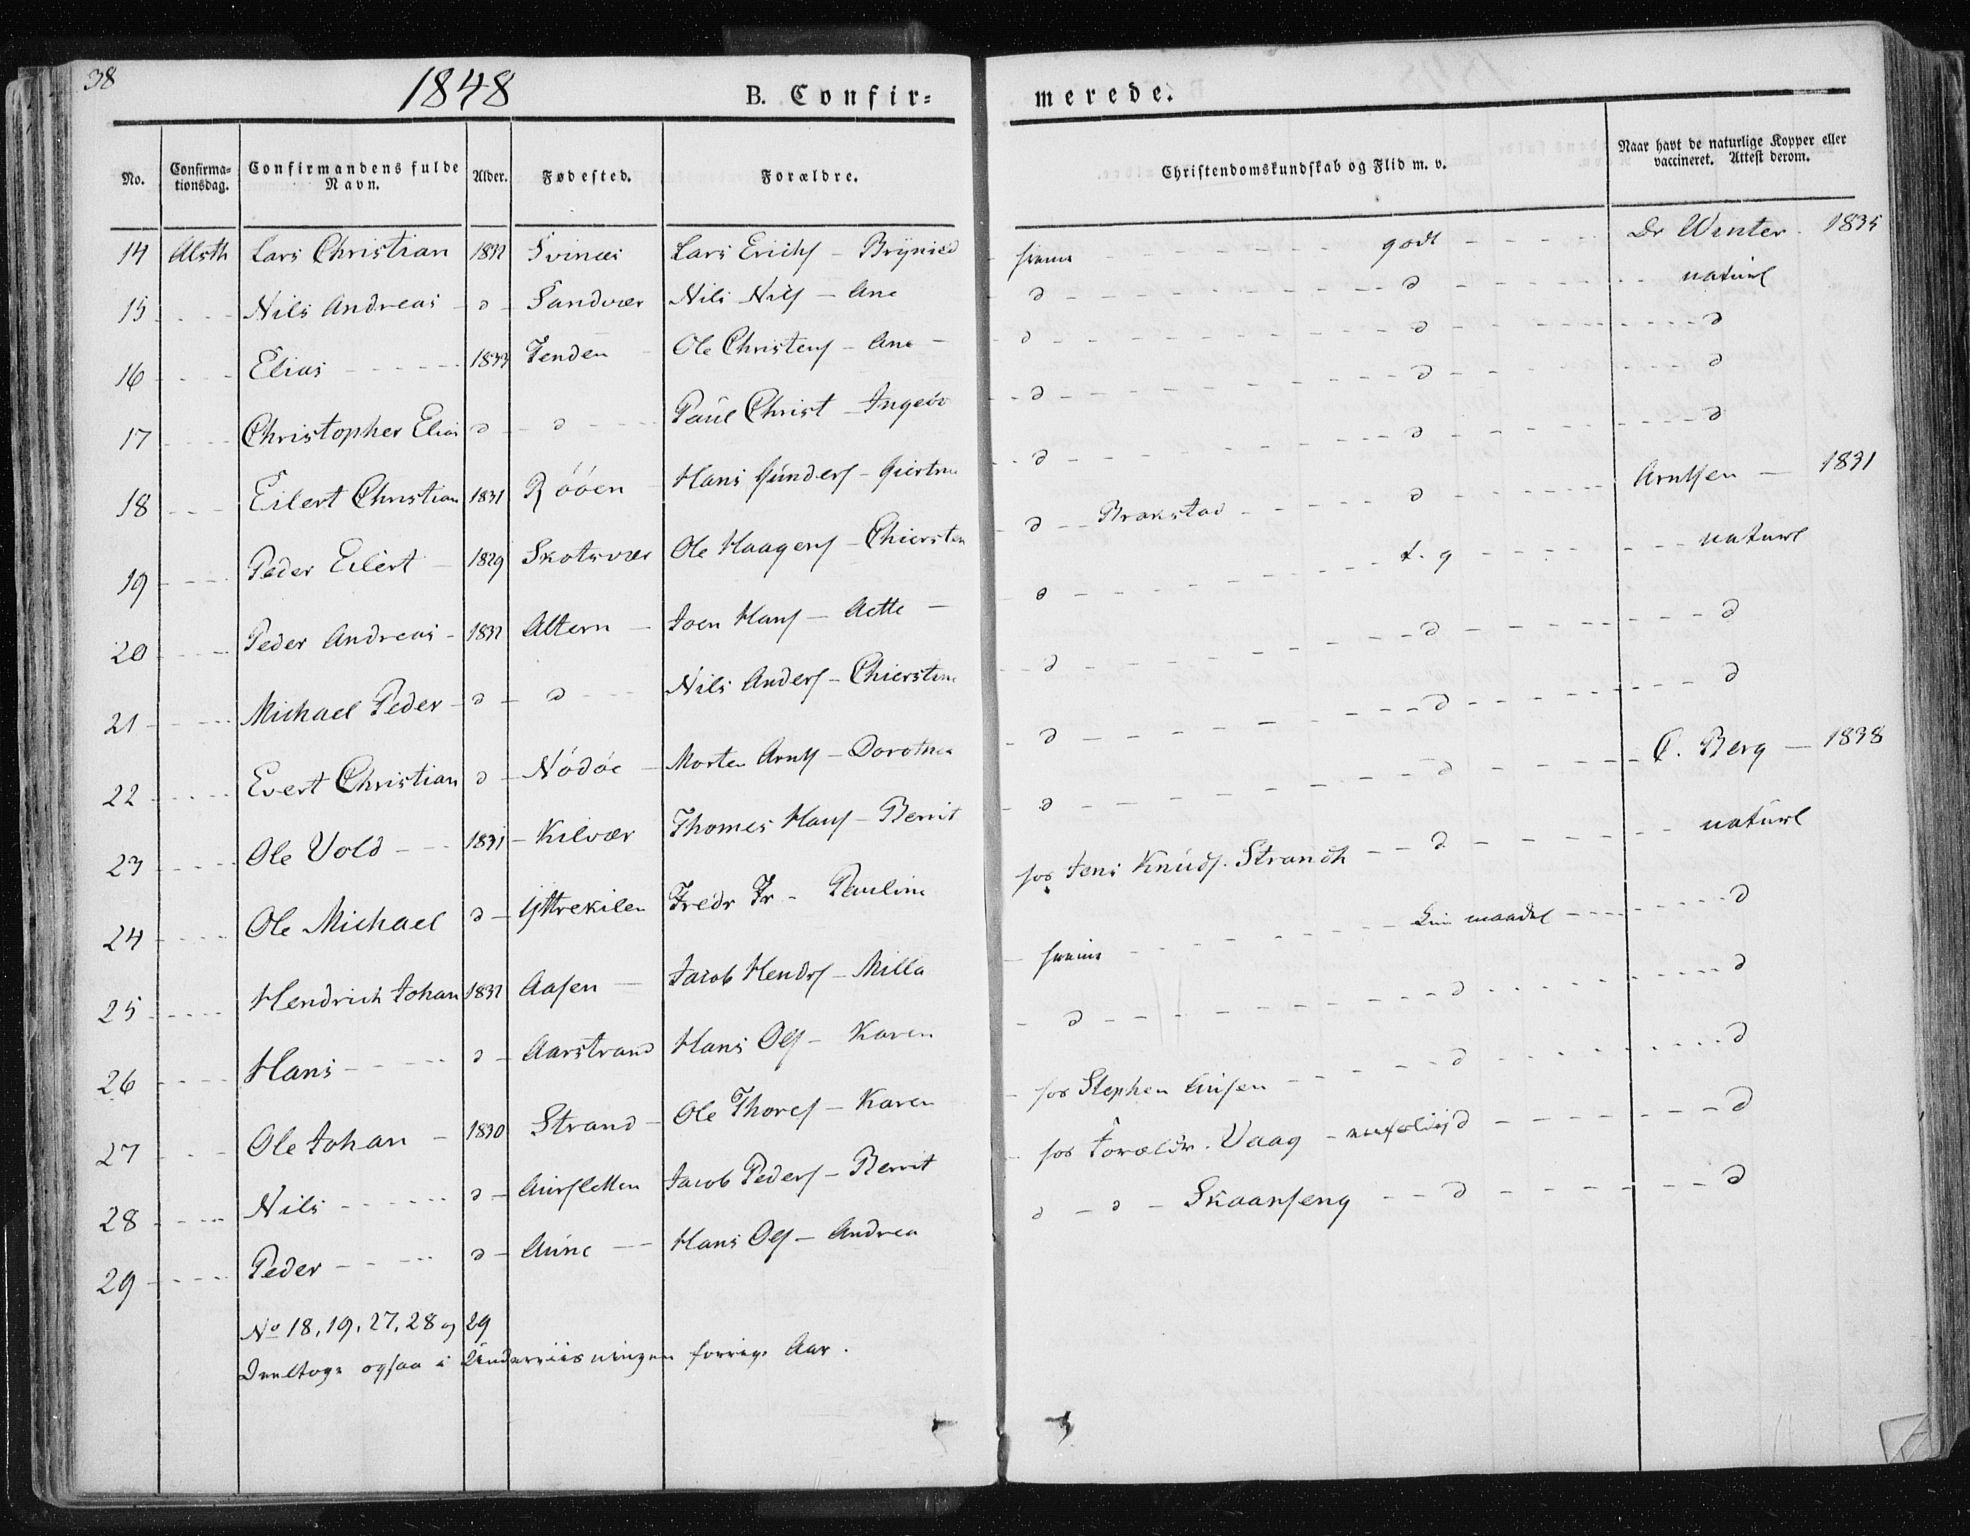 38
1848
B. Confir= merede.
No. Confirma-tionsdag. Confirmandens fulde Navn. Alder. Fødested. Forældre. Christendomskundskab og Flid m. v. Naar havt de naturlige Kopper eller vaccineret. Attest derom.
14 Alsth Lars Christian 1832 Svinæs Lars Erichs - Brynild - - - godt - - - Dr Winter. 1835
15 - - - Nils Andreas - d - Sandvær Nils Nils - Ane - d - - - d - - - naturl
16 - - - Elias - - - 1833 Tenden - Ole Christens - Ane - d - - - d - - - d
17 - - - Christopher Elias d - d - - - Paul Christ - Ingeb - d - - - d - - - d
18 - - - Eilert Christian 1831 Røöen Hans Gunders - Giertru - d - - - d - - - d
19 - - - Peder Eilert - 1829 Skotsvær Ole Haagens - Chiersten - d - Brakstad - - - d - - - Arntsen - 1831
20 - - - Peder Andreas - 1832 Altern - Joen Hans - Aette - d - - - t. g - - - naturl
21 - - - Michael Peder - d - d - - - Nils Anders - Chierstine - d - - - d - - - d
22 - - - Evert Christian d - Nödöe - Morten Arnts - Dorothea - d - - - d - - - d
23 - - - Ole Vold - - 1831 - Kilvær Thomes Hans - Berrit - d - - - d - - - C. Berg - 1838
24 - - - Ole Michael d - Yttrekilen Fredr Fr - Pauline hos Jens Knuds. Strandh - - d - - - naturl
25 - - - Hendrich Johan 1832 Aasen - Jacob Hendrs - Milla - - - maadel - - - d
26 - - - Hans - - - d - Aarstrand Hans Ols - Karen - d - - - d - - - d
27 - - - Ole Johan - 1830 Strand - Ole Thores - Karen - hos Stephen - - - d - - - d
28 - - - Nils - - - d - Aursletten Jacob Peders - Berrit - hos Forældr. Vaag - d - - - d
29 - - - Peder - - - d - Aune - - Hans Ols - Andrea d - d - Skaarseng - - d - - - d
No 18, 19, 27, 28 og 29
Deeltoge ogsaa i Underviisningen forrige Aar.